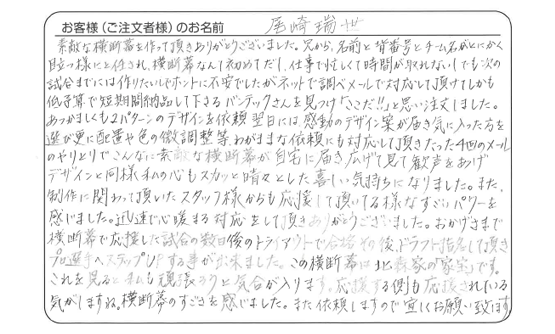 お客様（ご注文者様）のお名前 尾崎瑞世
素敵な横断幕を作って頂きありがとうございました。兄から、名前と背番号とチーム名がとにかく
目立つ様にと任され、横断幕なんて初めてだし、仕事も忙しくて時間が取れないしでも次の
試合までには作りたいしでホントに不安でしたがネットで調べメールで対応して頂けてしかも
低予算で短期間納品して下さるバンテックさんを見つけ「ここだ!!」と思い注文しました。
あつかましくも2パターンのデザインを依頼 翌日には感動のデザイン案が届き気に入った方を
選び更に配置や色の微調整等、わがままな依頼にも対応して頂きたった4回のメール
のやりとりでこんなに素敵な横断幕が自宅に届き広げて見て歓声をあげ
デザインと同様私の心もスカッと晴々とした喜しい気持ちになりました。また、
制作に関わって頂いたスタッフ様からも応援して頂いてる様なすごいパワーを
感じました。迅速で心暖まる対応をして頂きありがとうございました。おかげさまで
横断幕で応援した試合の数日後のトライアウトで合格 その後、ドラフト指名して頂き
プロ選手へステップUPする事が出来ました。この横断幕は北 家の「家宝」です。
これを見ると私も頑張ろうと気合が入ります。応援する側も応援されている
気がしますね。横断幕のすごさを感じました。また依頼しますので宜しくお願い致します